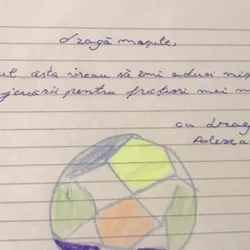 dragă moșule,
ul ăsta vreau să îmi aduci niș
jucării pentru frățiori mei m
cu drag